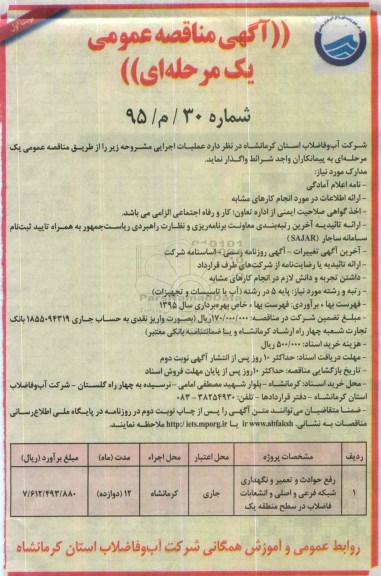 نوبت اول
((آگهی مناقصه عمومی
یک مرحله‌ای))
شماره ۳۰ / م/ ۹۵
شرکت آب‌وفاضلاب استان کرمانشاه در نظر دارد عملیات اجرایی مشروحه زیر را از طریق مناقصه عمومی یک
مرحله‌ای به پیمانکاران واجد شرائط واگذار نماید.
مدارک مورد نیاز:
- نامه اعلام آمادگی
- ارائه اطلاعات در مورد انجام کارهای مشابه
- اخذ گواهی صلاحیت ایمنی از اداره تعاون؛ کار و رفاه اجتماعی الزامی می باشد.
- ارائه تائیدیه آخرین رتبه‌بندی معاونت برنامه‌ریزی و نظارت راهبردی ریاست‌جمهور به همراه تایید ثبت‌نام
سامانه ساجار (SAJAR)
- آخرین آگهی تغییرات - آگهی روزنامه رسمی - اساسنامه شرکت
- ارائه تائیدیه یا رضایت‌نامه از شرکت‌های طرف قرارداد
- داشتن تجربه و دانش لازم در انجام کارهای مشابه
- رتبه و رشته مورد نیاز: پایه ۵ در رشته (آب یا تاسیسات و تجهیزات)
- فهرست بها ، برآوردی: فهرست بها ، خاص بهره‌برداری سال ۱۳۹۵
- مبلغ تضمین شرکت در مناقصه: ۱۷۰/۰۰۰/۰۰۰ریال (بصورت واریز نقدی به حساب جاری ۱۸۵۵۰۹۴۳۱۹ بانک
تجارت شعبه چهار راه ارشاد کرمانشاه و یا ضمانتنامه بانکی معتبر)
- هزینه خرید اسناد: ۵۰۰/۰۰۰ ریال
- مهلت دریافت اسناد: حداکثر ۱۰ روز پس از انتشار آگهی نوبت دوم
- تاریخ بازگشایی مناقصه: حداکثر ۱۰روز پس از پایان مهلت فروش اسناد
- محل خرید اسناد: کرمانشاه - بلوار شهید مصطفی امامی - نرسیده به چهار راه گلستان - شرکت آب‌وفاضلاب
استان کرمانشاه - دفتر قراردادها - تلفن: ۳۸۲۵۴۹۳۰ - ۰۸۳
- ضمنا متقاضیان می‌توانند متن آگهی را پس از چاپ نوبت دوم در روزنامه در پایگاه ملی اطلاع‌رسانی
مناقصات به نشانی. ir www.abfaksh یا http://iets.mporg.ir ملاحظه نمایند.
ردیف مشخصات پروژه محل اعتبار محل اجراء مدت (ماه) مبلغ برآورد (ریال)
۱ رفع حوادث و تعمیر و نگهداری شبکه فرعی و اصلی و انشعابات فاضلاب در سطح منطقه یک جاری کرمانشاه ۱۲ (دوازده) ۷/۶۱۲/۴۹۳/۸۸۰
روابط عمومی و آموزش همگانی شرکت آب‌وفاضلاب استان کرمانشاه